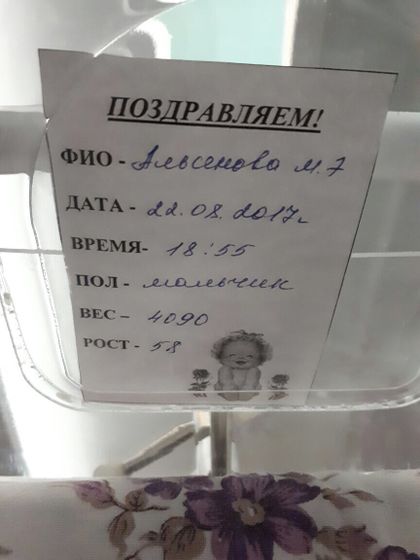 ПОЗДРАВЛЯЕМ!
ФИО - Альсенова М. 7
ДАТА - 22.08.2017г
ВРЕМЯ- 18:55
ПОЛ - мальчик
ВЕС – 4090
РОСТ - 58